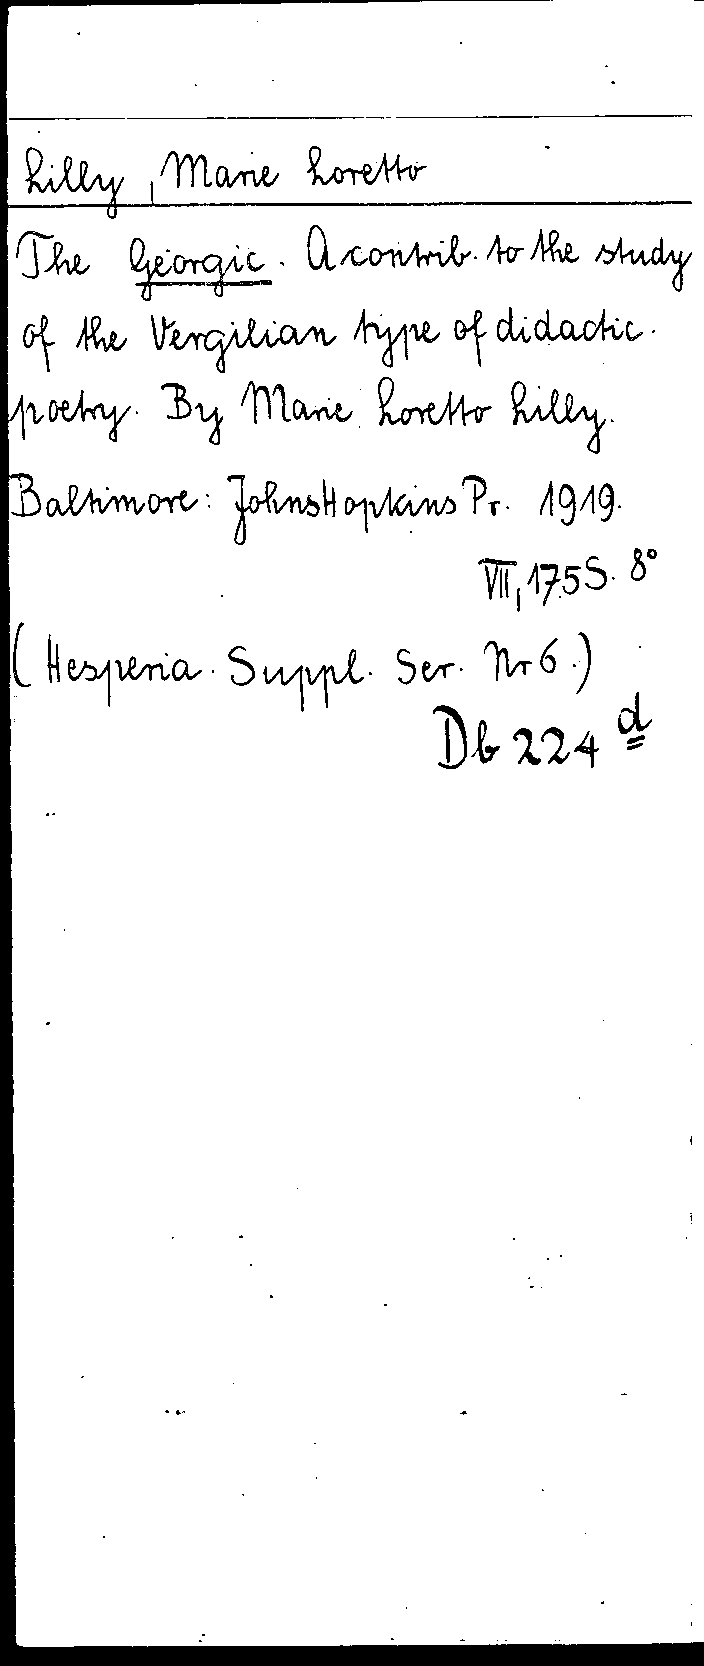 Lilly, Marie Loretto
The Georgic. A contrib. to the study
of the Vergilian type of didactic
poetry. By Marie Loretto Lilly.
Baltimore: Johns Hopkins Pr. 1919.
VII, 175 S. 8°
(Hesperia. Suppl. Ser. Nr 6.)
Db 224 d